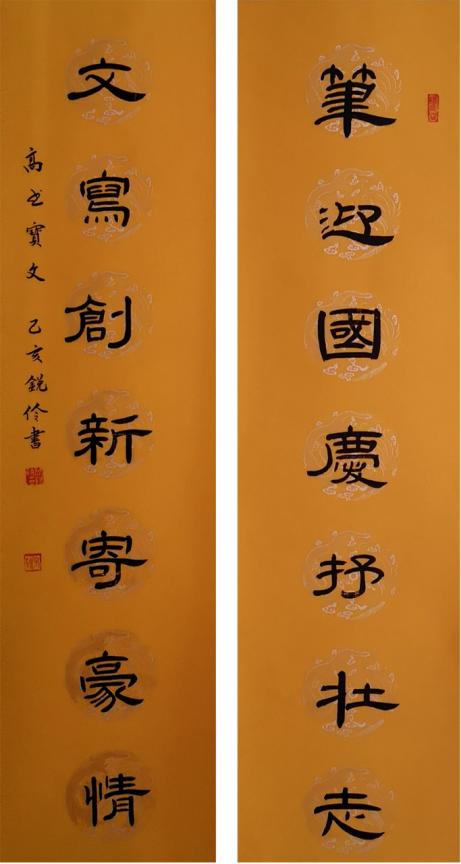 筆迎國慶抒壯志
文寫創新寄豪情
高占寶文 乙亥銳伶書